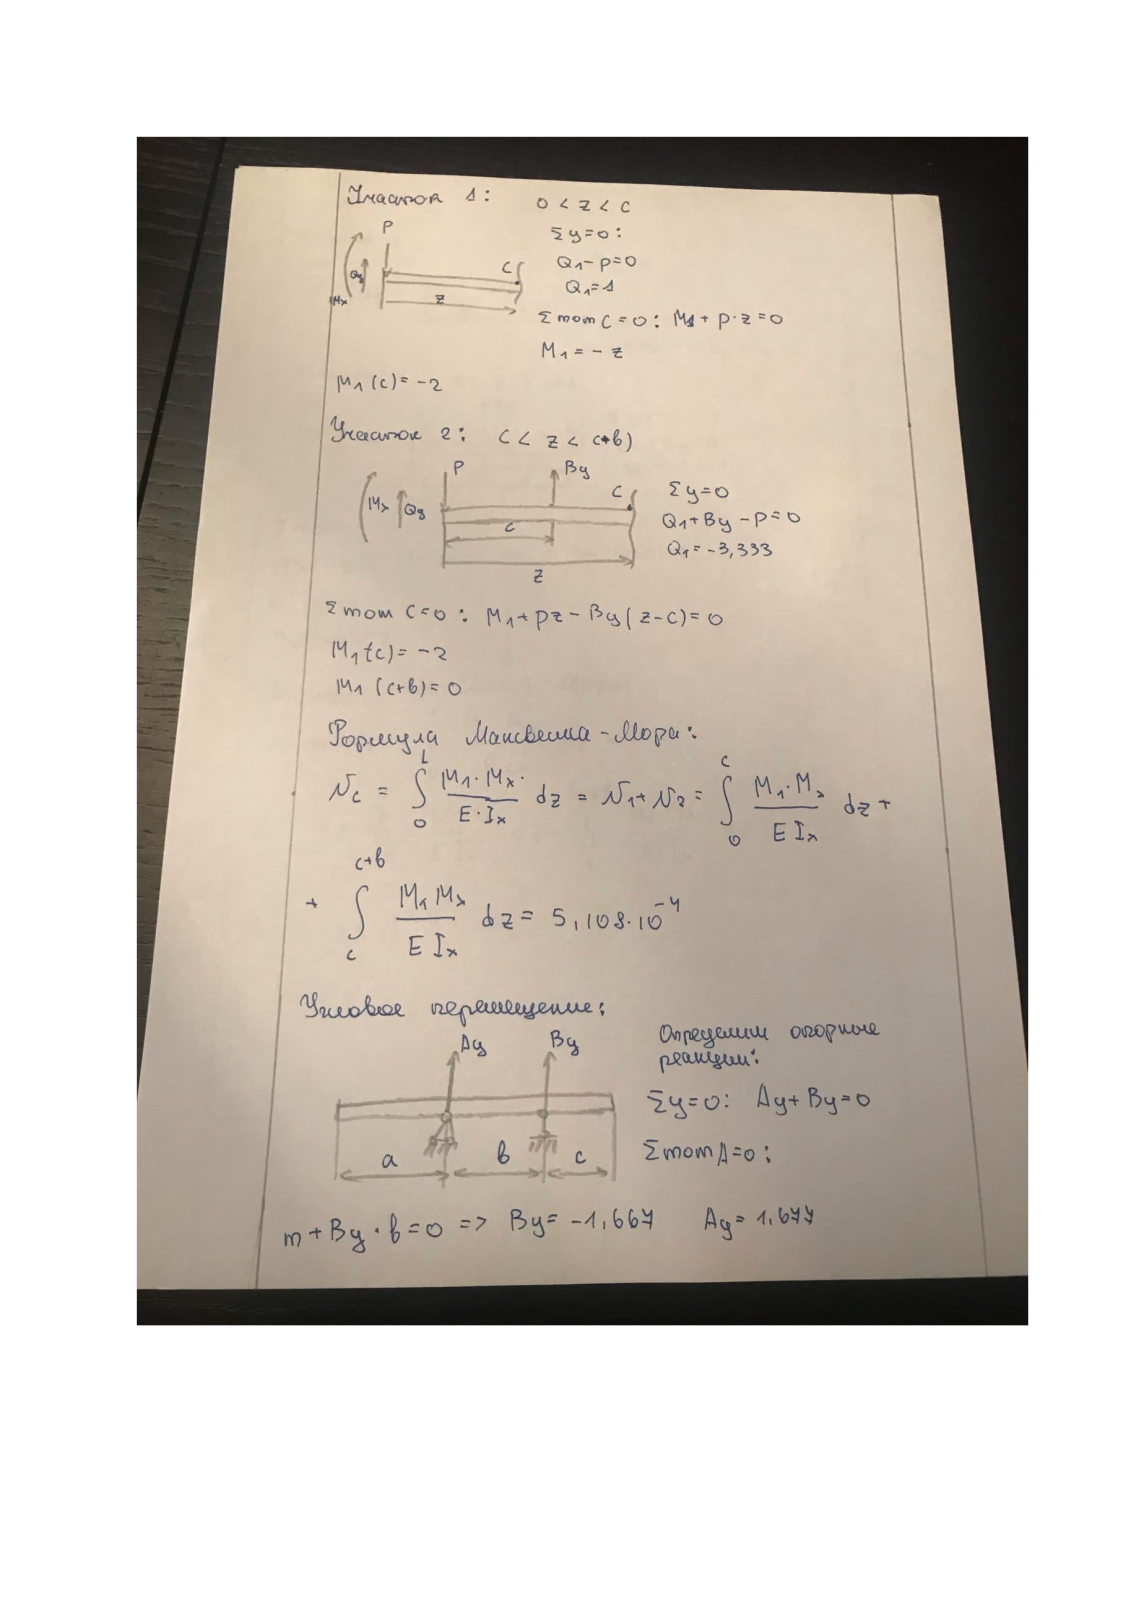 Участок 1: 0 < z < c
Σy=0:
P
Q₁-p=0
Qy
C
Q₁=1
Mx
z
Σmom C=0: M₁+p·z=0
M₁=-z
M₁(c)=-2
Участок 2: c < z < c+b)
P
By
Mx
Qy
C
Σy=0
c
Q₁+By-p=0
Q₁=-3,333
z
Σmom C=0: M₁+pz-By(z-c)=0
M₁(c)=-2
M₁(c+b)=0
Формула Максвелла-Мора:
Vc = ∫₀ᴸ M₁·Mx· / E·Ix dz = V₁+V₂ = ∫₀ᶜ M₁·Mx / E Ix dz +
+ ∫_c^{c+b} M₁Mx / E Ix dz = 5,108·10⁻⁴
Угловое перемещение:
Ay
By
Определим опорные
реакции:
Σy=0: Ay+By=0
a
b
c
Σmom A=0:
m+By·b=0 => By=-1,667 Ay=1,677